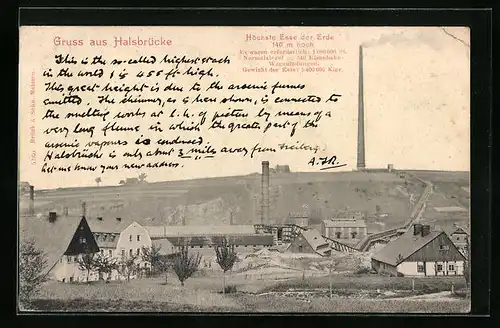 Gruss aus Halsbrücke
Höchste Esse der Erde
140 m hoch
Es waren erforderlich: 1 000 000 St.
Normalsteine 540 Eisenbahn-
Wagenladungen.
Gewicht der Esse: 5 400 000 Klgr.
This is the so-called highest stack
in the world & is 455 ft high.
This great height is due to the arsenic fumes
emitted. The chimney, as is here shown, is connected to
the smelting works at l.h. of picture by means of a
very long flume in which the greater part of the
arsenic vapours is condensed.
Halsbrück is only about 3 miles away from Freiberg
Let me know your new address.
Brück & Sohn, Meissen.